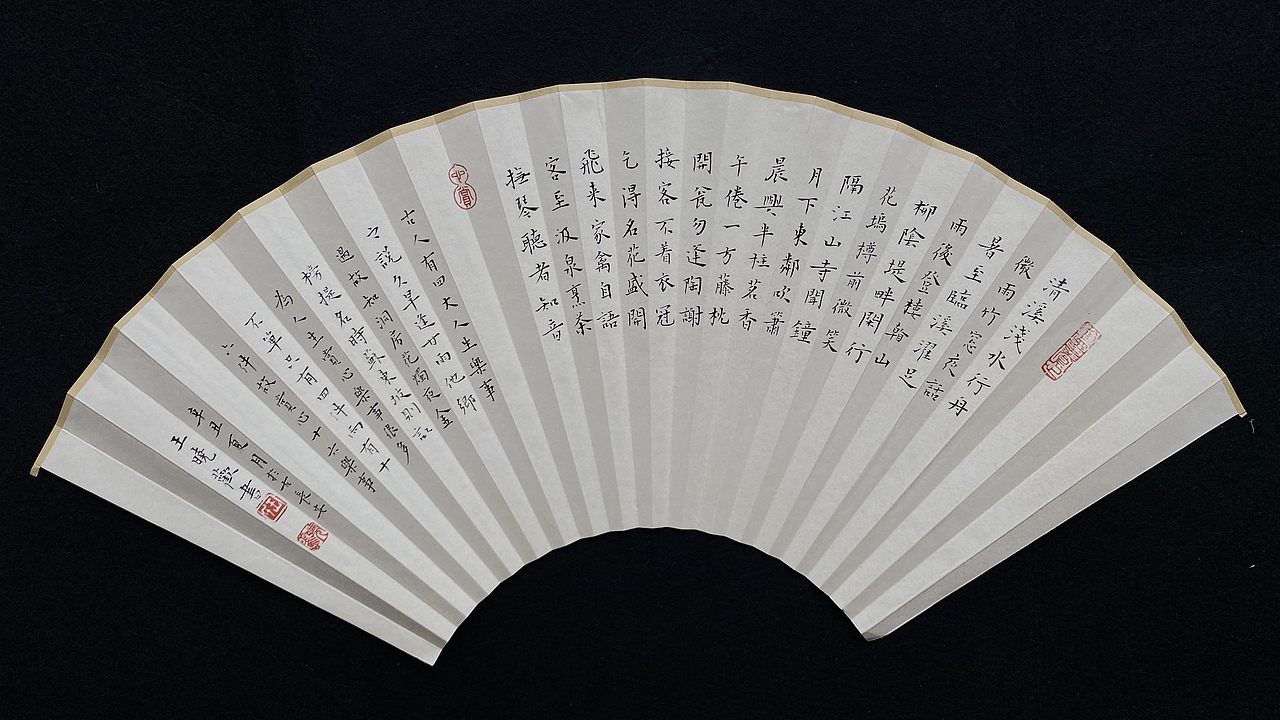 清溪淺水行舟
微雨竹窓夜話
暑至臨溪濯足
雨後登樓看山
柳陰堤畔閑行
花塢樽前微笑
隔江山寺聞鐘
月下東鄰吹簫
晨興半炷茗香
午倦一方藤枕
開瓮勿逢陶謝
接客不着衣冠
乞得名花盛開
飛来家禽自語
客至汲泉烹茶
撫琴聽者知音
古人有四大人生樂事
之說久旱逢甘雨他鄉
遇故知洞房花燭夜金
榜提名時蘇東坡則認
為人生賞心樂事很多
不單只有四件而有十
六件故賞心十六樂事
辛丑夏月於古長安
王曉書